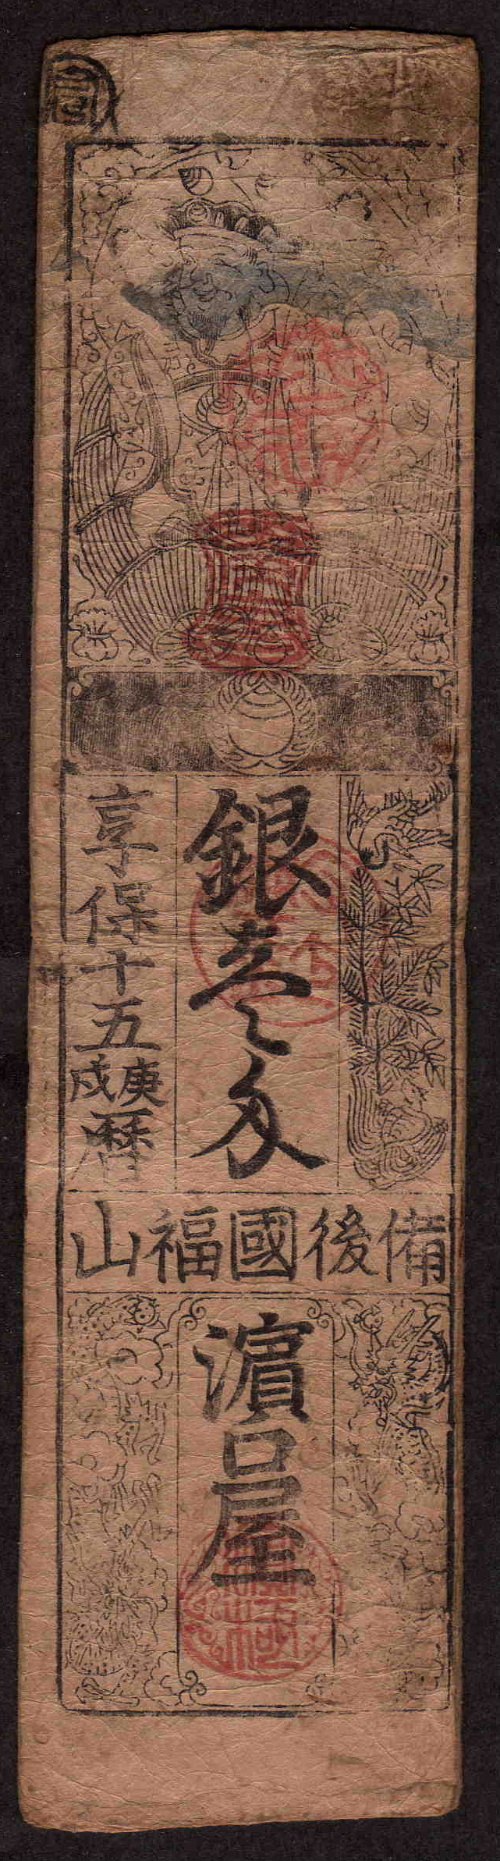 銀壱匁
享保十五
庚戌
暦
備後國福山
濵口屋